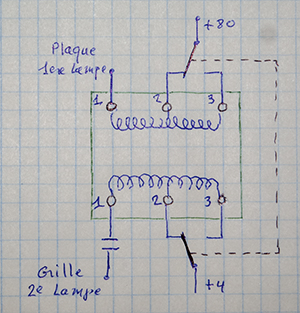 +80
Plaque
1ere Lampe
1 2 3
1 2 3
Grille
2e Lampe
+4